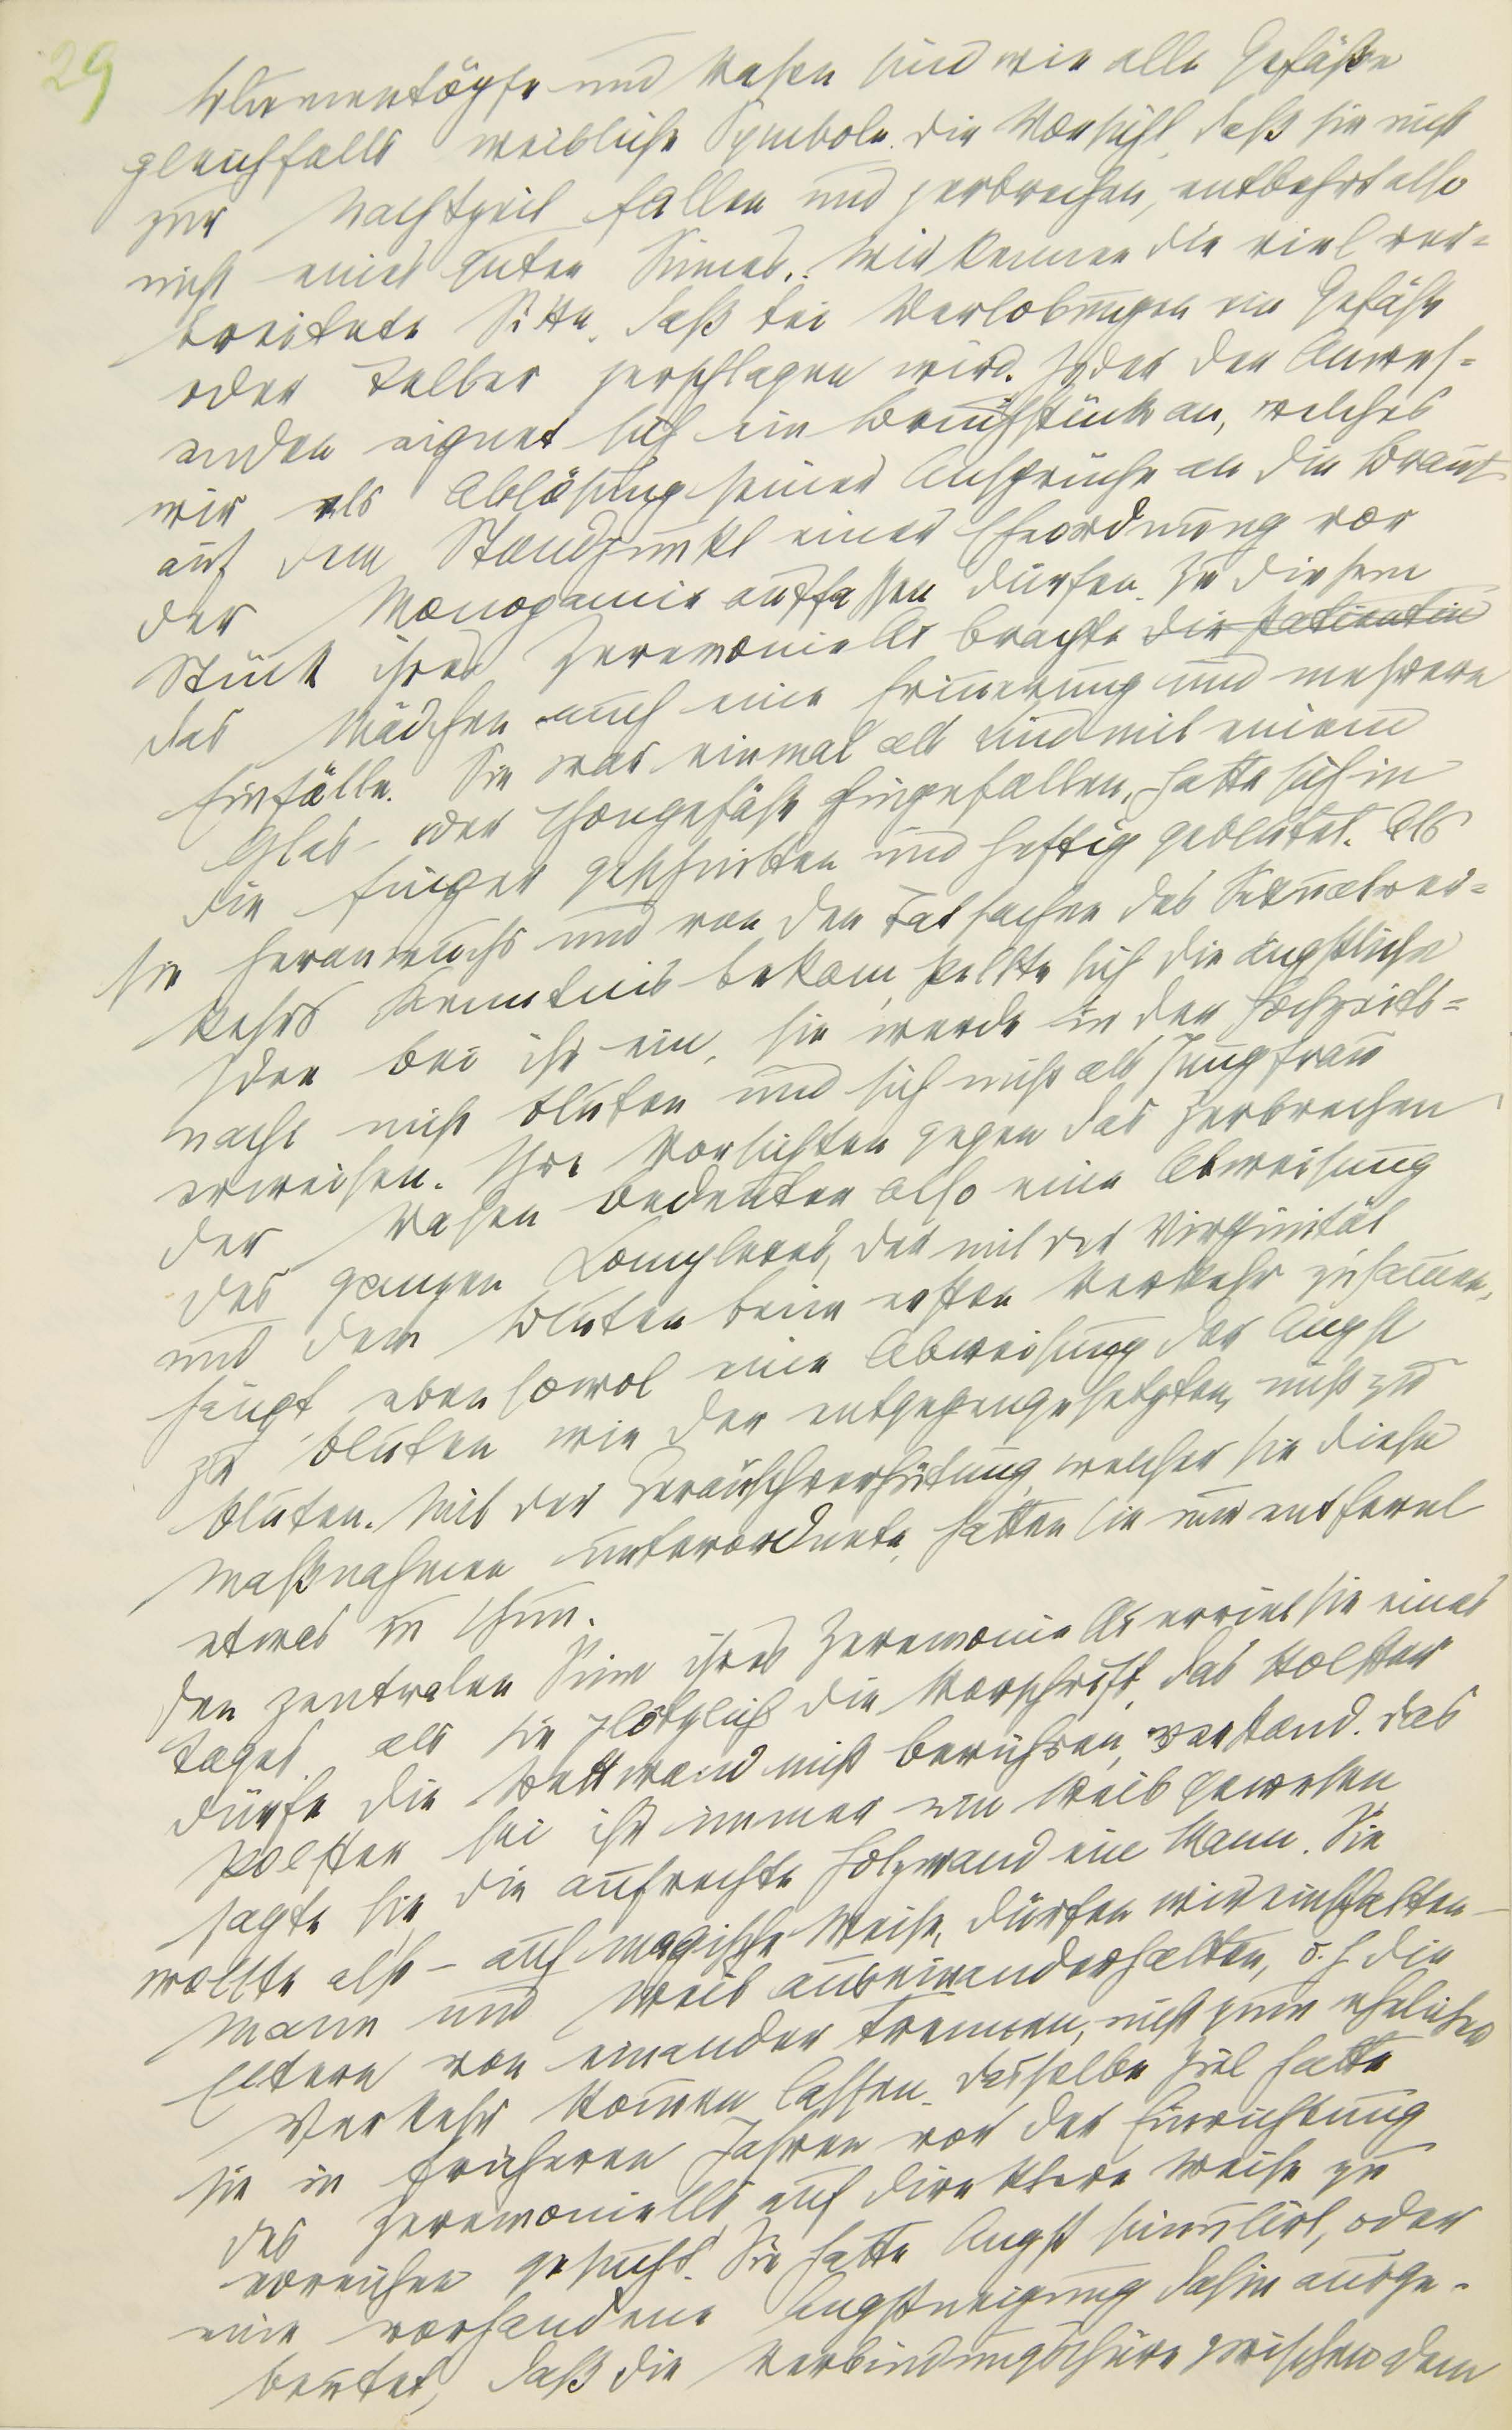 29
Blumentöpfe und Vasen sind wie alle Gefäße
gleichfalls weibliche Symbole. Die Vorsicht, daß sie nicht
zur Nachtzeit fallen und zerbrechen, entbehrt also
nicht eines guten Sinnes. Wir kennen die viel ver=
breitete Sitte, daß bei Verlobungen ein Gefäß
oder Teller zerschlagen wird. Jeder der Anwes=
enden eignet sich ein Bruchstück an, welches
wir als Ablösung seiner Ansprüche an die Braut
auf dem Standpunkt einer Eheordnung vor
der Monogamie auffassen dürfen. Zu diesem
Stück ihres Zeremoniells brachte die Patientin
das Mädchen auch eine Erinnerung und mehrere
Einfälle. Sie war einmal als Kind mit einem
Glas- oder Thongefäß hingefallen, hatte sich in
die Finger geschnitten und heftig geblutet. Als
sie heranwuchs und von den Tatsachen des Sexualver=
kehrs Kenntnis bekam, stellte sich die ängstliche
Idee bei ihr ein, sie werde in der Hochzeits=
nacht nicht bluten und sich nicht als Jungfrau
erweisen. Ihre Vorsichten gegen das Zerbrechen
der Vasen bedeuten also eine Abweisung
des ganzen Complexes, der mit der Virginität
und dem Bluten beim ersten Verkehr zusammen,
hängt, ebensowol eine Abweisung der Angst
zu bluten wie der entgegengesetzten, nicht zu
bluten. Mit der Geräuschverhütung, welcher sie diese
Maßnahmen unterordnete, hatten sie nur entfernt
etwas zu thun.
Den zentralen Sinn ihres Zeremoniells erriet sie eines
Tages, als sie plötzlich die Vorschrift, das Polster
dürfe die Bettwand nicht berühren, verstand. Das
Polster sei ihr immer ein Weib gewesen,
sagte sie, die aufrechte Holzwand ein Mann. Sie
wollte also – auf magische Weise, dürfen wir einschalten –
Mann und Weib auseinanderhalten, d. h. die
Eltern von einander trennen, nicht zum ehelichen
Verkehr kommen lassen. Dasselbe Ziel hatte
sie in früheren Jahren vor der Einrichtung
des Zeremoniells auf direktere Weise zu
erreichen gesucht. Sie hatte Angst simulirt, oder
eine vorhandene Angstneigung dahin ausge-
beutet, daß die Verbindungsthüre zwischen dem